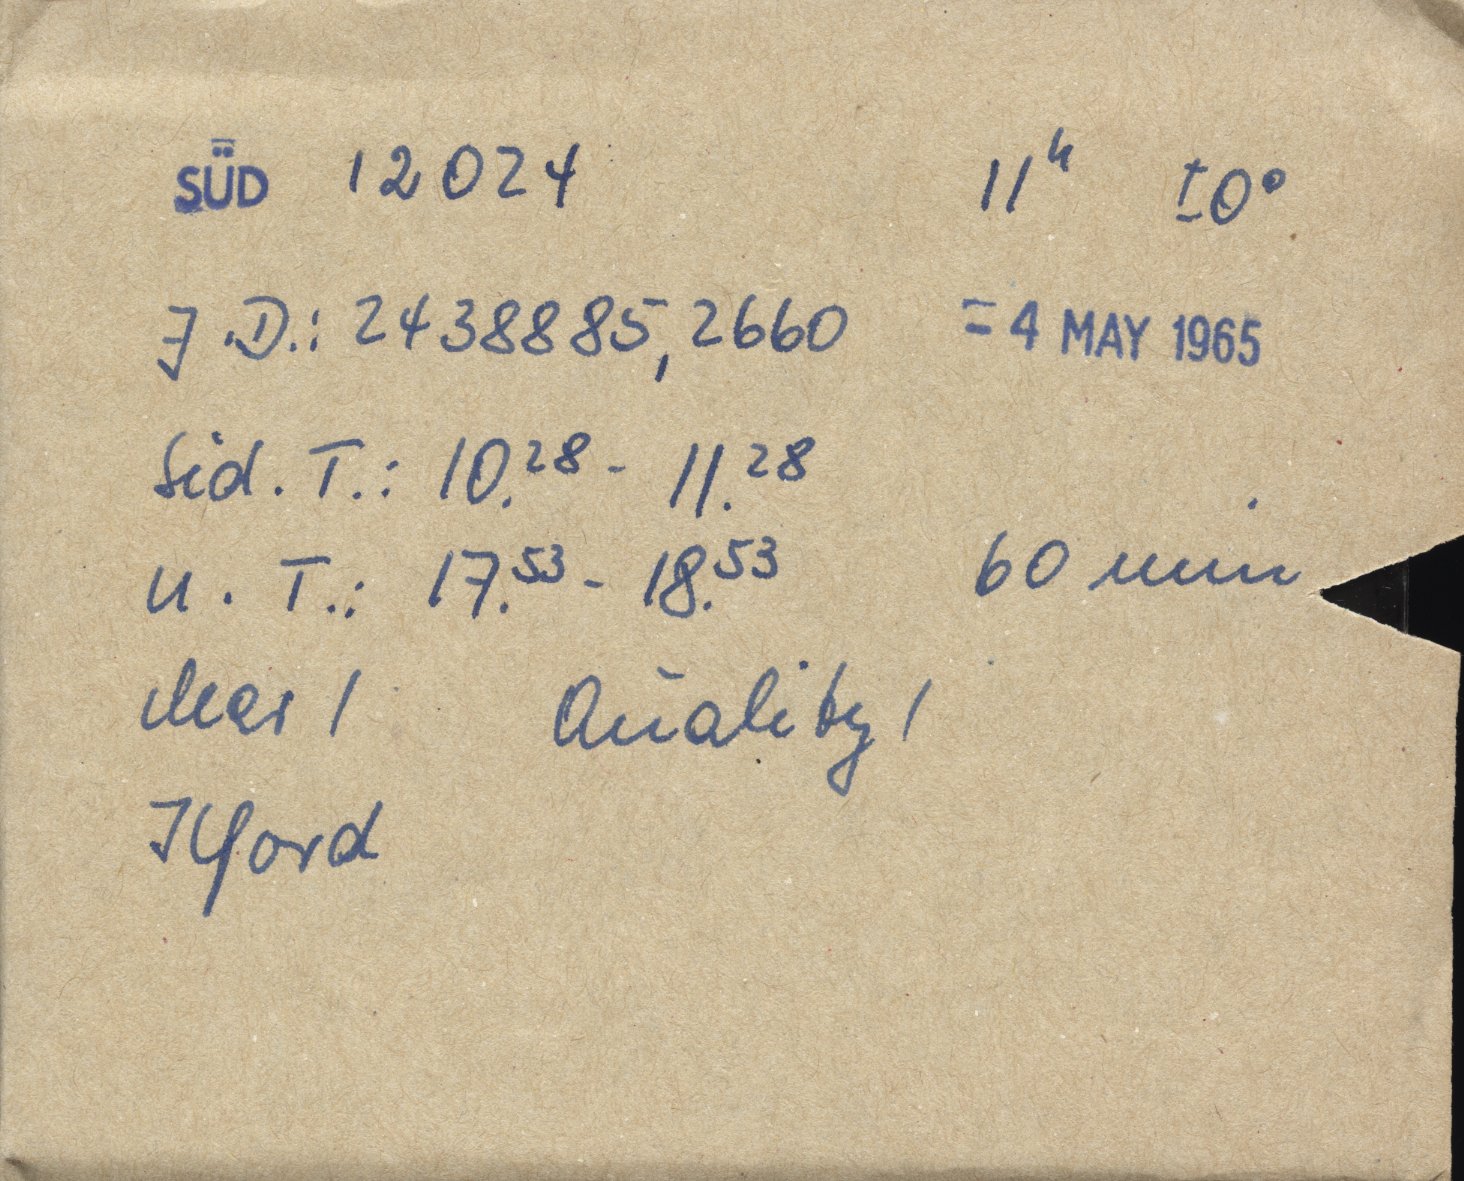 SÜD 12024 11ʰ ±0°
J.D.: 2438885,2660 - 4 MAY 1965
Sid. T.: 10.²⁸ - 11.²⁸
U. T.: 17.⁵³ - 18.⁵³ 60 min
Quality 1
Ilford